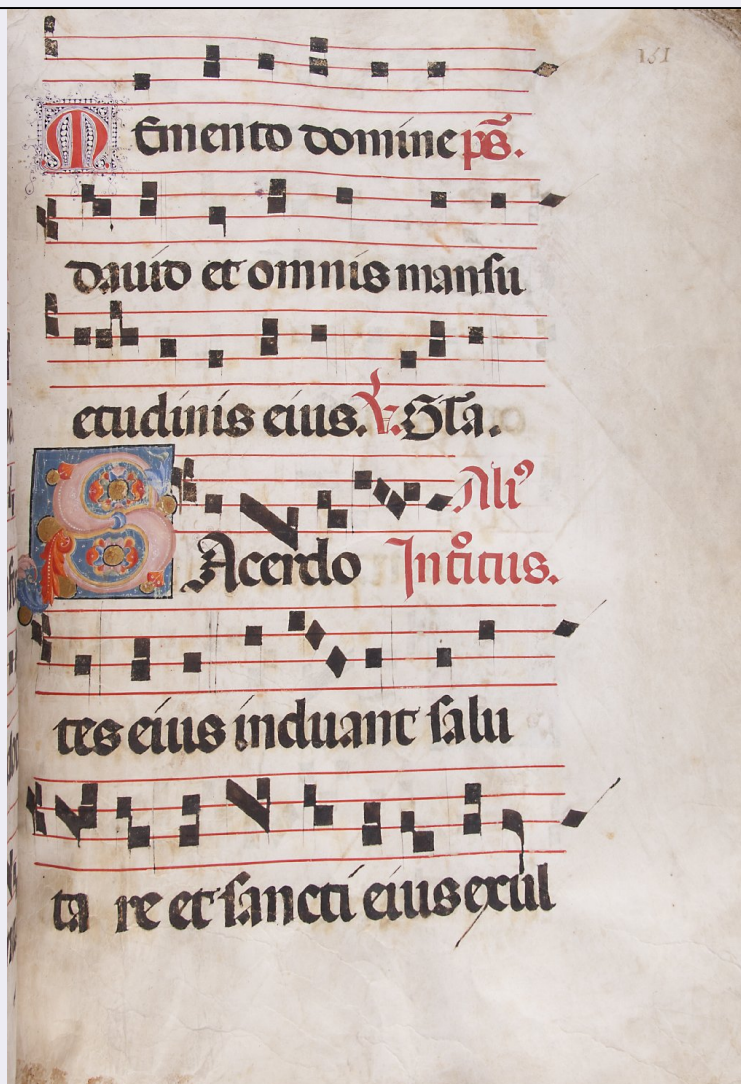 151
Memento domine ps̃.
dauid et omnis mansu
etudinis eius. ℣. Gl̃a.
Sacerdo Aliꝰ Introitus.
tes eius induant salu
ta re et sancti eius exul